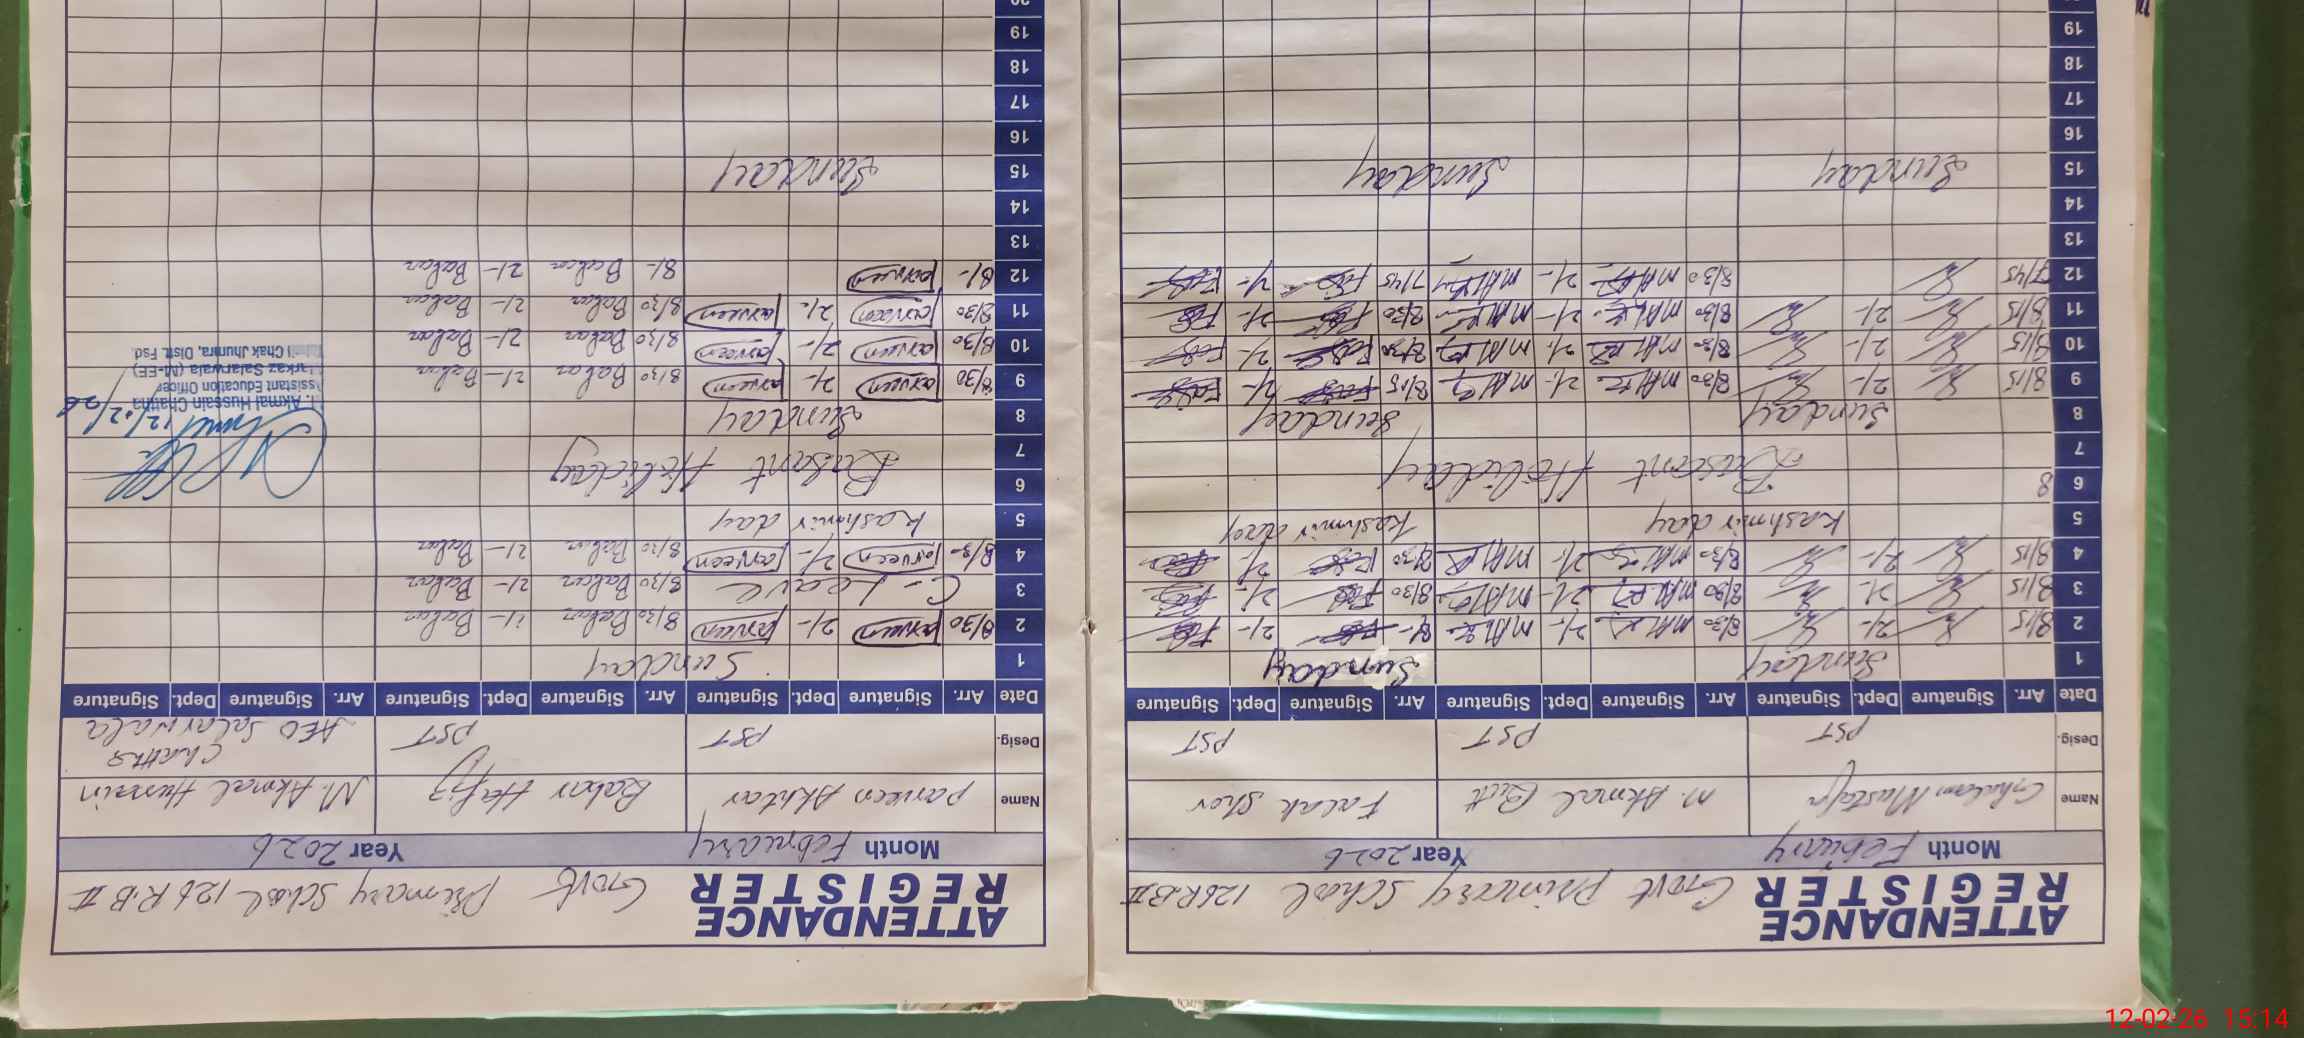 ATTENDANCE REGISTER Govt Primary School 126 R.B II
Month February Year 2026
Name Ghulam Mustafa M. Akmal Butt Falak Sher
Desig. PST PST PST
Date Arr. Signature Dept. Signature Arr. Signature Dept. Signature Arr. Signature Dept. Signature
1 Sunday Sunday
2 8/15 2/- 8/30 2/- 8/- 2/-
3 8/15 2/- 8/30 2/- 8/30 2/-
4 8/15 2/- 8/30 2/- 8/30 2/-
5 Kashmir day Kashmir day
6 8
7 Basant Holiday
8 Sunday Sunday
9 8/15 2/- 8/30 2/- 8/15 2/-
10 8/15 2/- 8/30 2/- 8/30 2/-
11 8/15 2/- 8/30 2/- 8/30 2/-
12 7/45 8/30 2/- 7/45
13
14
15 Sunday Sunday Sunday
16
17
18
19
ATTENDANCE REGISTER Govt Primary School 126 R.B II
Month February Year 2026
Name Parveen Akhtar Babar Hafiz M. Akmal Hussain Chattha
Desig. PST PST AEO Salarwala
Date Arr. Signature Dept. Signature Arr. Signature Dept. Signature Arr. Signature Dept. Signature
1 Sunday
2 8/30 Parveen 2/- Parveen 8/30 Babar 2/- Babar
3 C-Leave 8/30 Babar 2/- Babar
4 8/30 Parveen 2/- Parveen 8/30 Babar 2/- Babar
5 Kashmir day
6
7 Basant Holiday
8 Sunday
12/02/26
9 8/30 Parveen 2/- Parveen 8/30 Babar 2/- Babar
10 8/30 Parveen 2/- Parveen 8/30 Babar 2/- Babar
Akmal Hussain Chattha
Assistant Education Officer
Markaz Salarwala (M-EE)
Chak Jhumra, Distt. Fsd.
11 8/30 Parveen 2/- Parveen 8/30 Babar 2/- Babar
12 8/- Parveen 8/- Babar 2/- Babar
13
14
15 Sunday
16
17
18
19
20
12-02-26 15:14